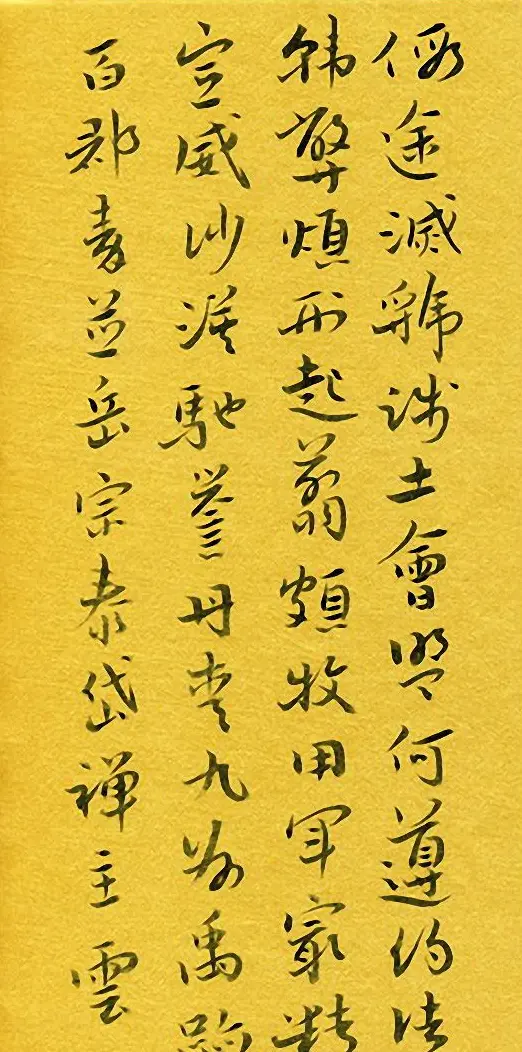 假途滅虢踐土會盟何遵約法
韓弊煩刑起翦頗牧用軍最精
宣威沙漠馳譽丹青九州禹跡
百郡秦並岳宗泰岱禪主雲